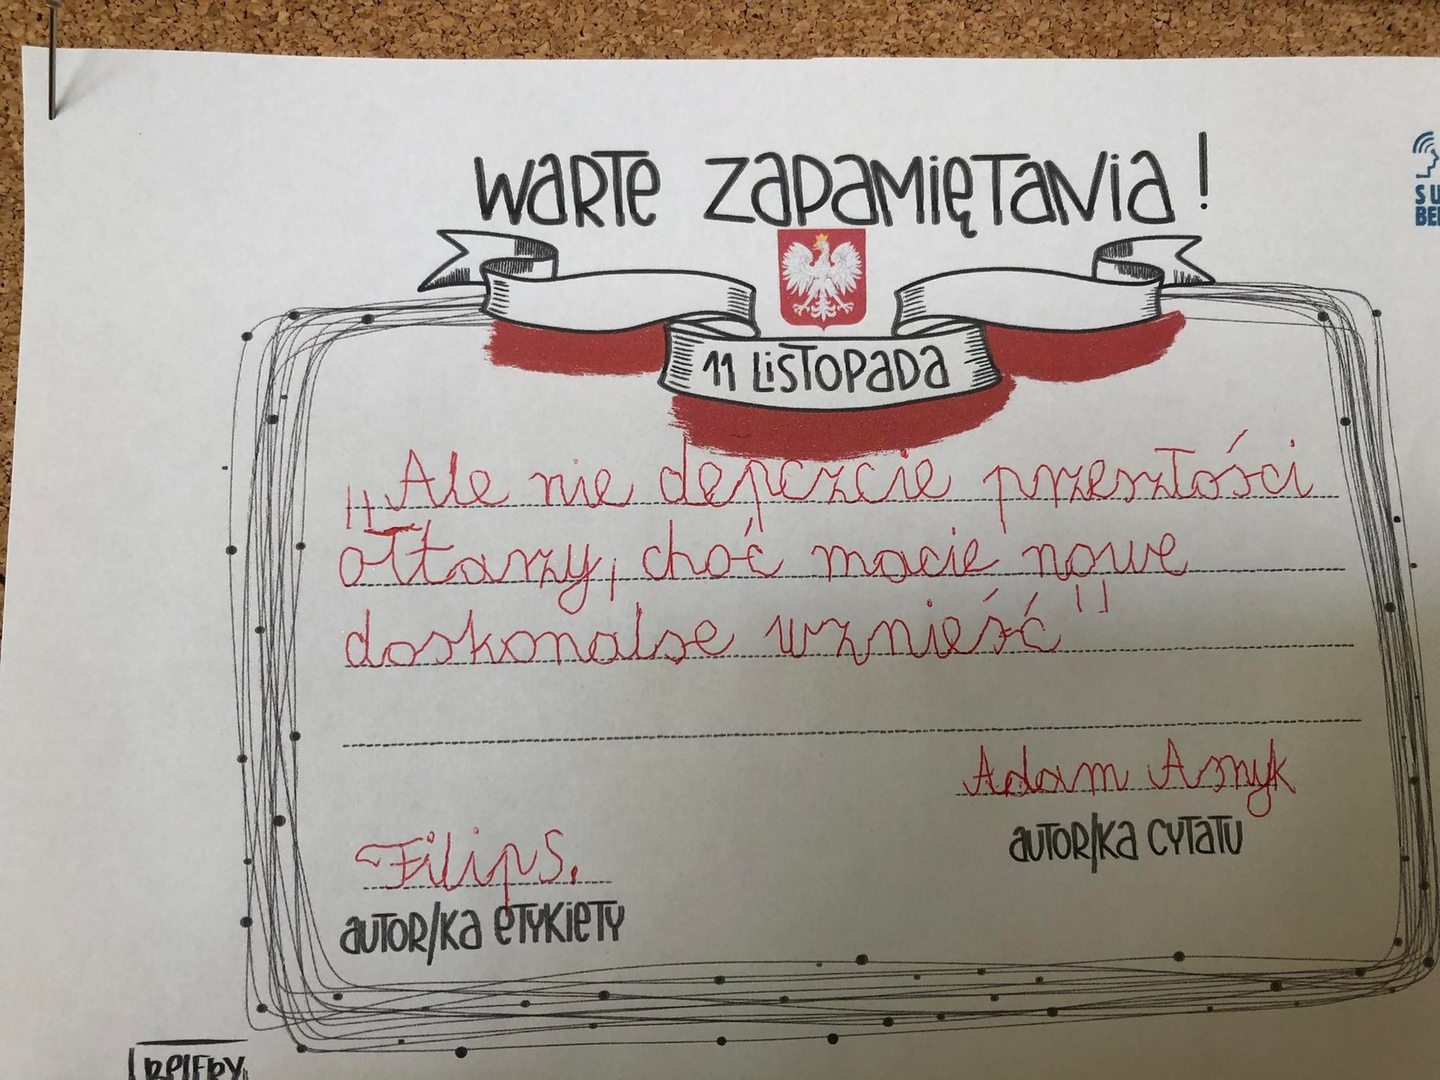 WARTE ZAPAMIĘTANIA!
SU
BEL
11 LISTOPADA
„Ale nie depczcie przeszłości
ołtarzy, choć macie nowe
doskonalse wznieść"
Adam Asnyk
autor/ka cytatu
Filip S.
autor/ka etykiety
BELFRY